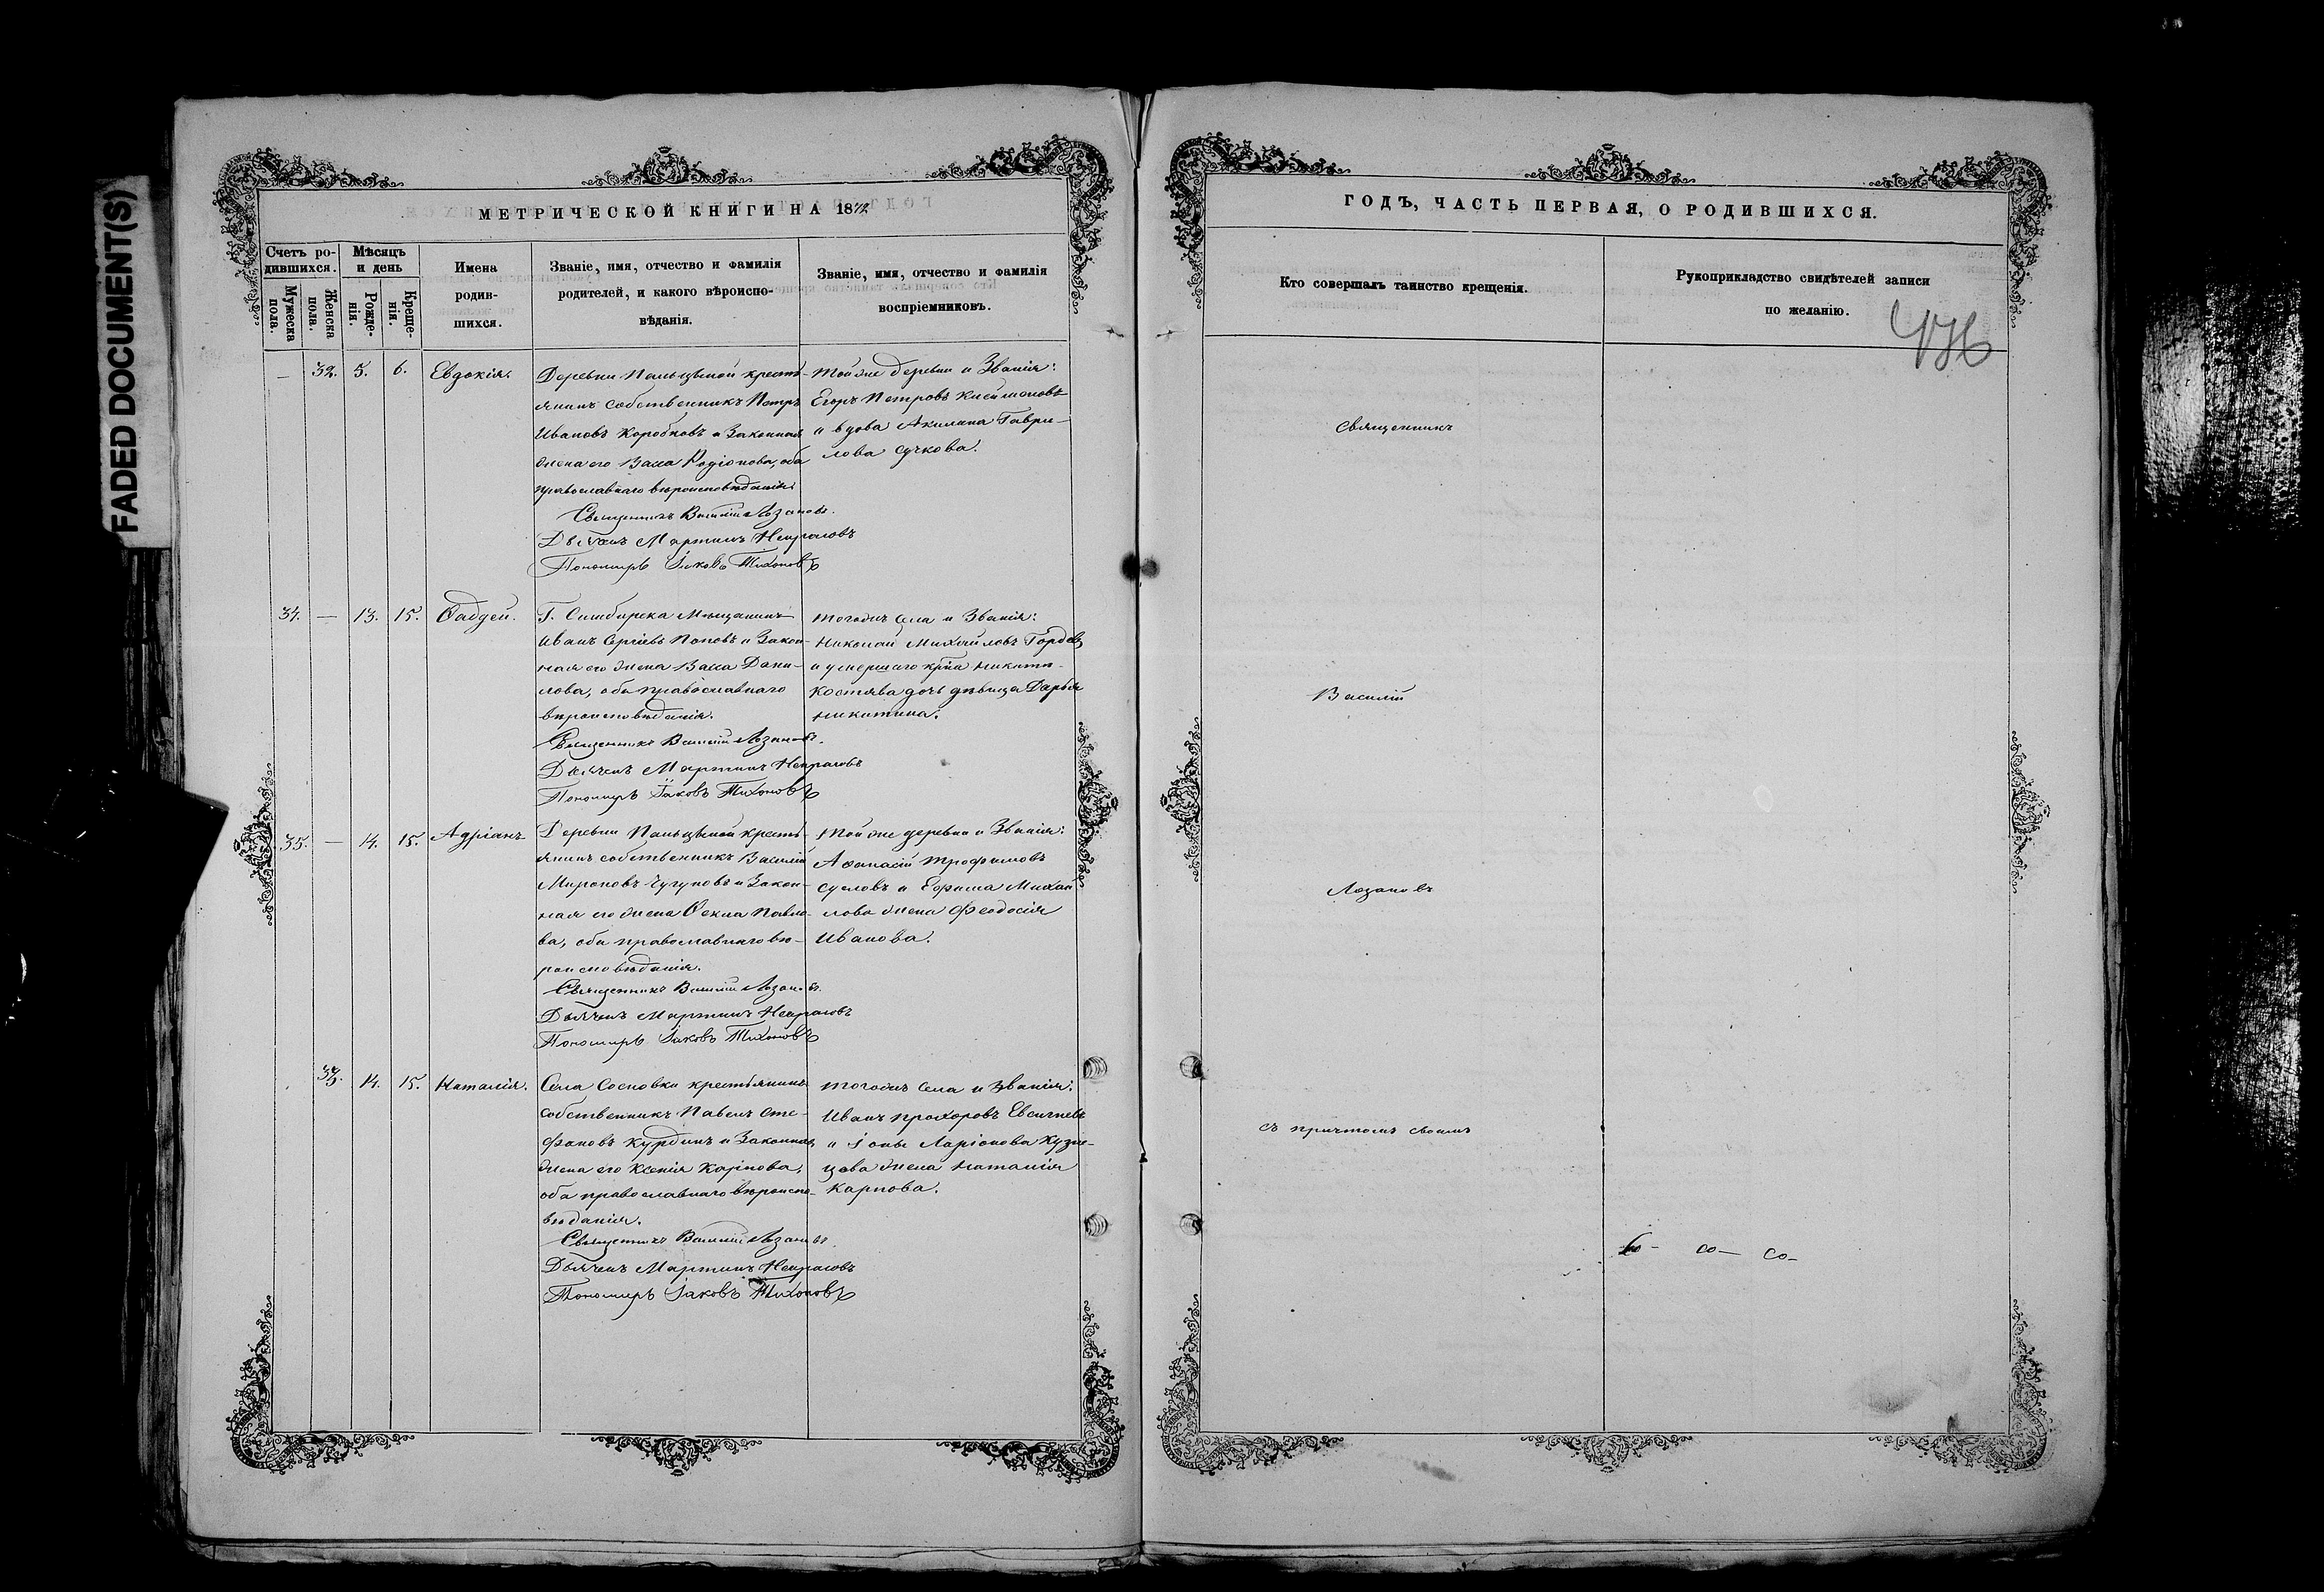 FADED DOCUMENT(S)
МЕТРИЧЕСКОЙ КНИГИ НА 1872
Счетъ ро-
дившихся.
Мужеска
пола.
Женска
пола.
Мѣсяцъ
и день
Рожде-
нія.
Креще-
нія.
Имена
родив-
шихся.
Званіе, имя, отчество и фамилія
родителей, и какого вѣроиспо-
вѣданія.
Званіе, имя, отчество и фамилія
воспріемниковъ.
— 32. 5. 6. Евдокія.
Деревни Пальцыной кресть-
янинъ собственникъ Петръ
Ивановъ Коробковъ и Законная
жена его Васса Родіонова, оба
православнаго вѣроисповѣданія.
Священникъ Василій Лозановъ.
Дьячекъ Мартинъ Некрасовъ
Пономарь Іаковъ Тихоновъ
Тойже деревни и Званія:
Егоръ Петровъ
и вдова Акилина Гаври-
лова Сучкова.
34. — 13. 15. Ѳаддей.
Г. Симбирска Мѣщанинъ
Иванъ Сергіевъ Поповъ и Закон-
ная его жена Васса Дани-
лова, оба православнаго
вѣроисповѣданія.
Священникъ Василій Лозановъ.
Дьячекъ Мартинъ Некрасовъ
Пономарь Іаковъ Тихоновъ
тогожъ села и Званія:
Николай Михайловъ Гордѣевъ
и умершаго кр҃на Никиты
Костява дочь дѣвица Дарья
Никитина.
35. — 14. 15. Адріанъ
Деревни Пальцыной кресть-
янинъ собственникъ Василій
Мироновъ Чугуновъ и Закон-
ная его жена Ѳекла Павло-
ва, оба православнаго вѣ-
роисповѣданія.
Священникъ Василій Лозановъ.
Дьячекъ Мартинъ Некрасовъ
Пономарь Іаковъ Тихоновъ
Той же деревни и Званія:
Аѳанасій Трофимовъ
Сусловъ и Ефима Михай
лова жена Феодосія
Иванова.
33. 14. 15. Наталія.
Села Сосновки крестьянинъ
собственникъ Павелъ Сте-
фановъ Курдинъ и Законная
жена его Ксенія Карпова,
оба православнаго вѣроиспо-
вѣданія.
Священникъ Василій Лозановъ.
Дьячекъ Мартинъ Некрасовъ
Пономарь Іаковъ Тихоновъ
тогожъ Села и Званія:
Иванъ Прохоровъ Евсичевъ
и Іоны Ларіонова Кузне-
цова жена Наталія
Карпова.
ГОДЪ, ЧАСТЬ ПЕРВАЯ, О РОДИВШИХСЯ.
Кто совершалъ таинство крещенія.
Рукоприкладство свидѣтелей записи
по желанію.
Священникъ
Василій
Лозановъ
съ причтомъ своимъ
со- со- со-